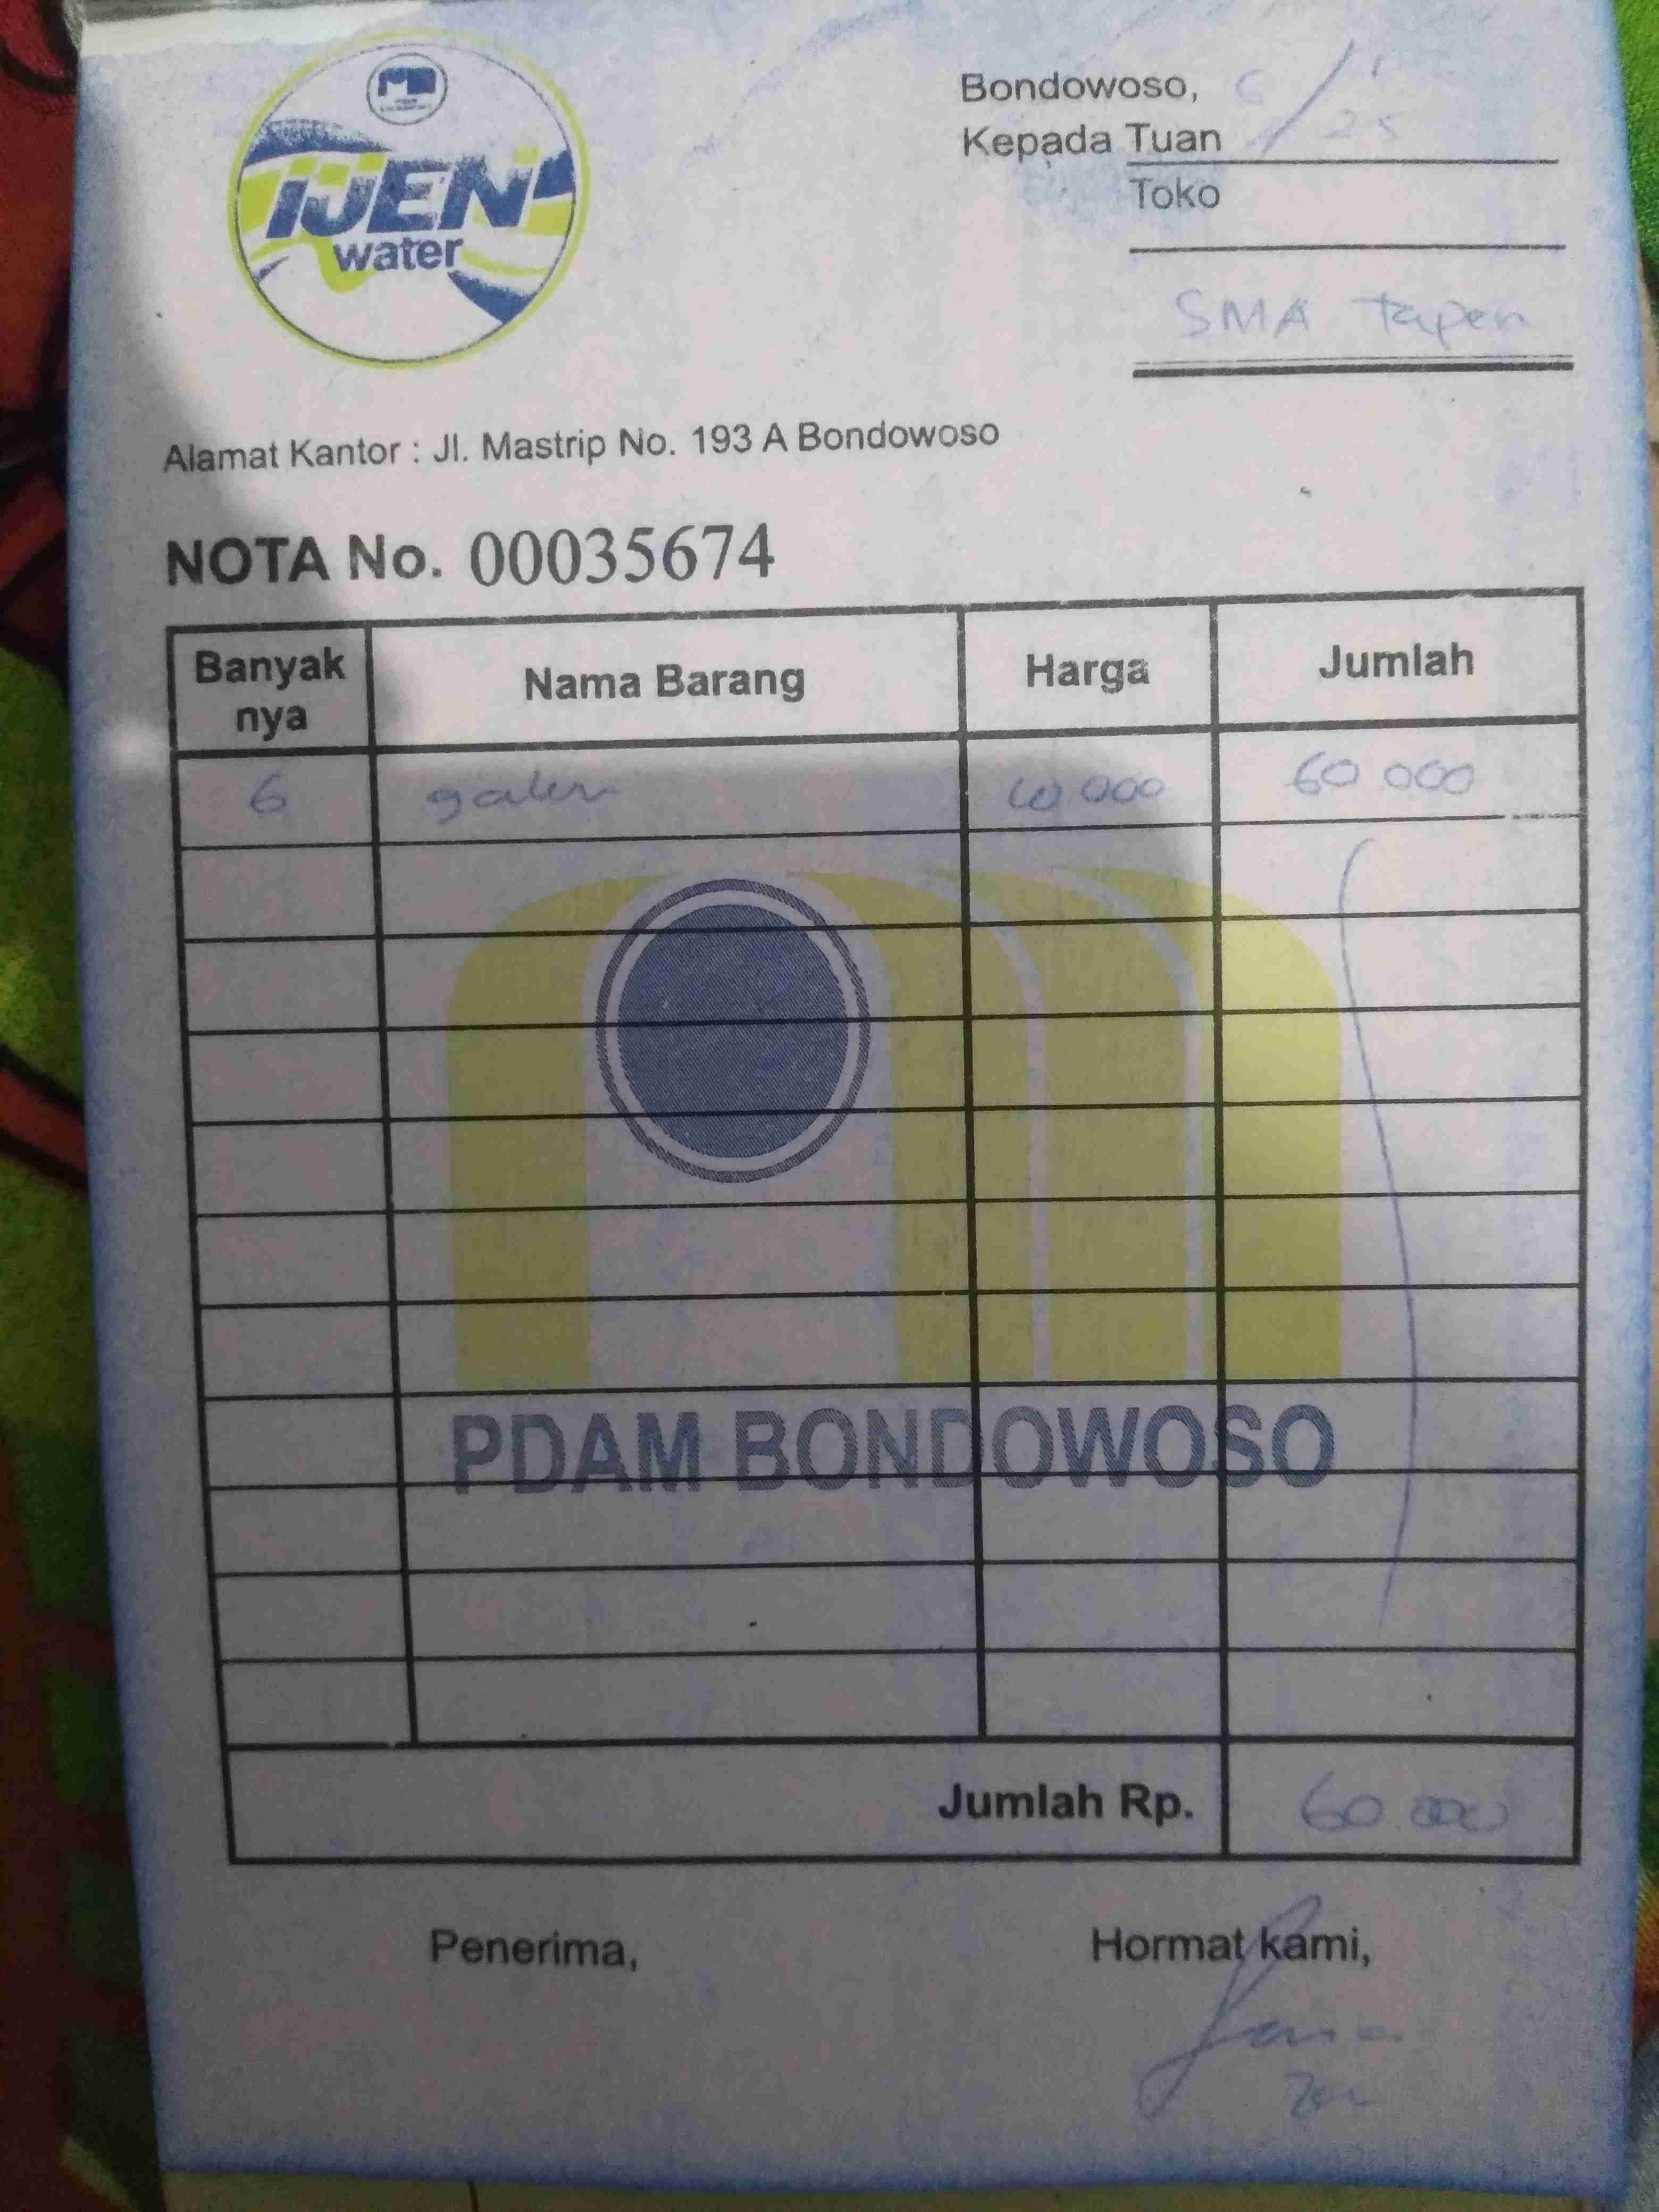 IJEN
water
Bondowoso, 6/1 25
Kepada Tuan
Toko
SMA Tapen
Alamat Kantor : Jl. Mastrip No. 193 A Bondowoso
NOTA No. 00035674
Banyak nya Nama Barang Harga Jumlah
6 galon 10 000 60 000
PDAM BONDOWOSO
Jumlah Rp. 60 000
Penerima, Hormat kami,